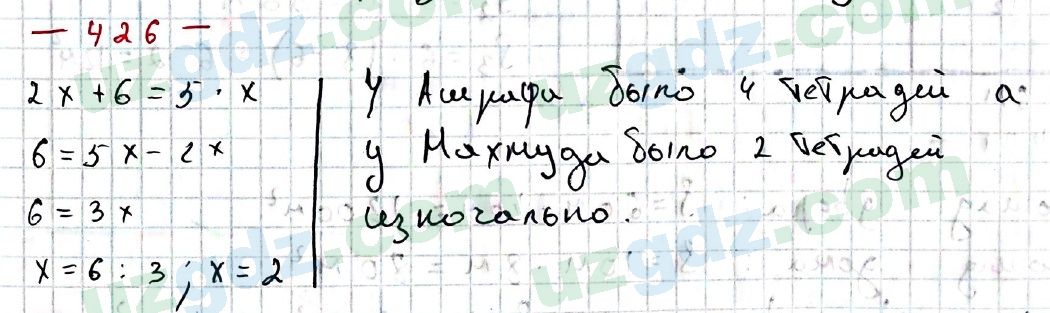 — 426 —
2x + 6 = 5 · x
6 = 5x - 2x
6 = 3x
x = 6 : 3 ; x = 2
У Ашрафа было 4 тетрадей а
у Махмуда было 2 тетрадей
изночально.
uzgdz.com